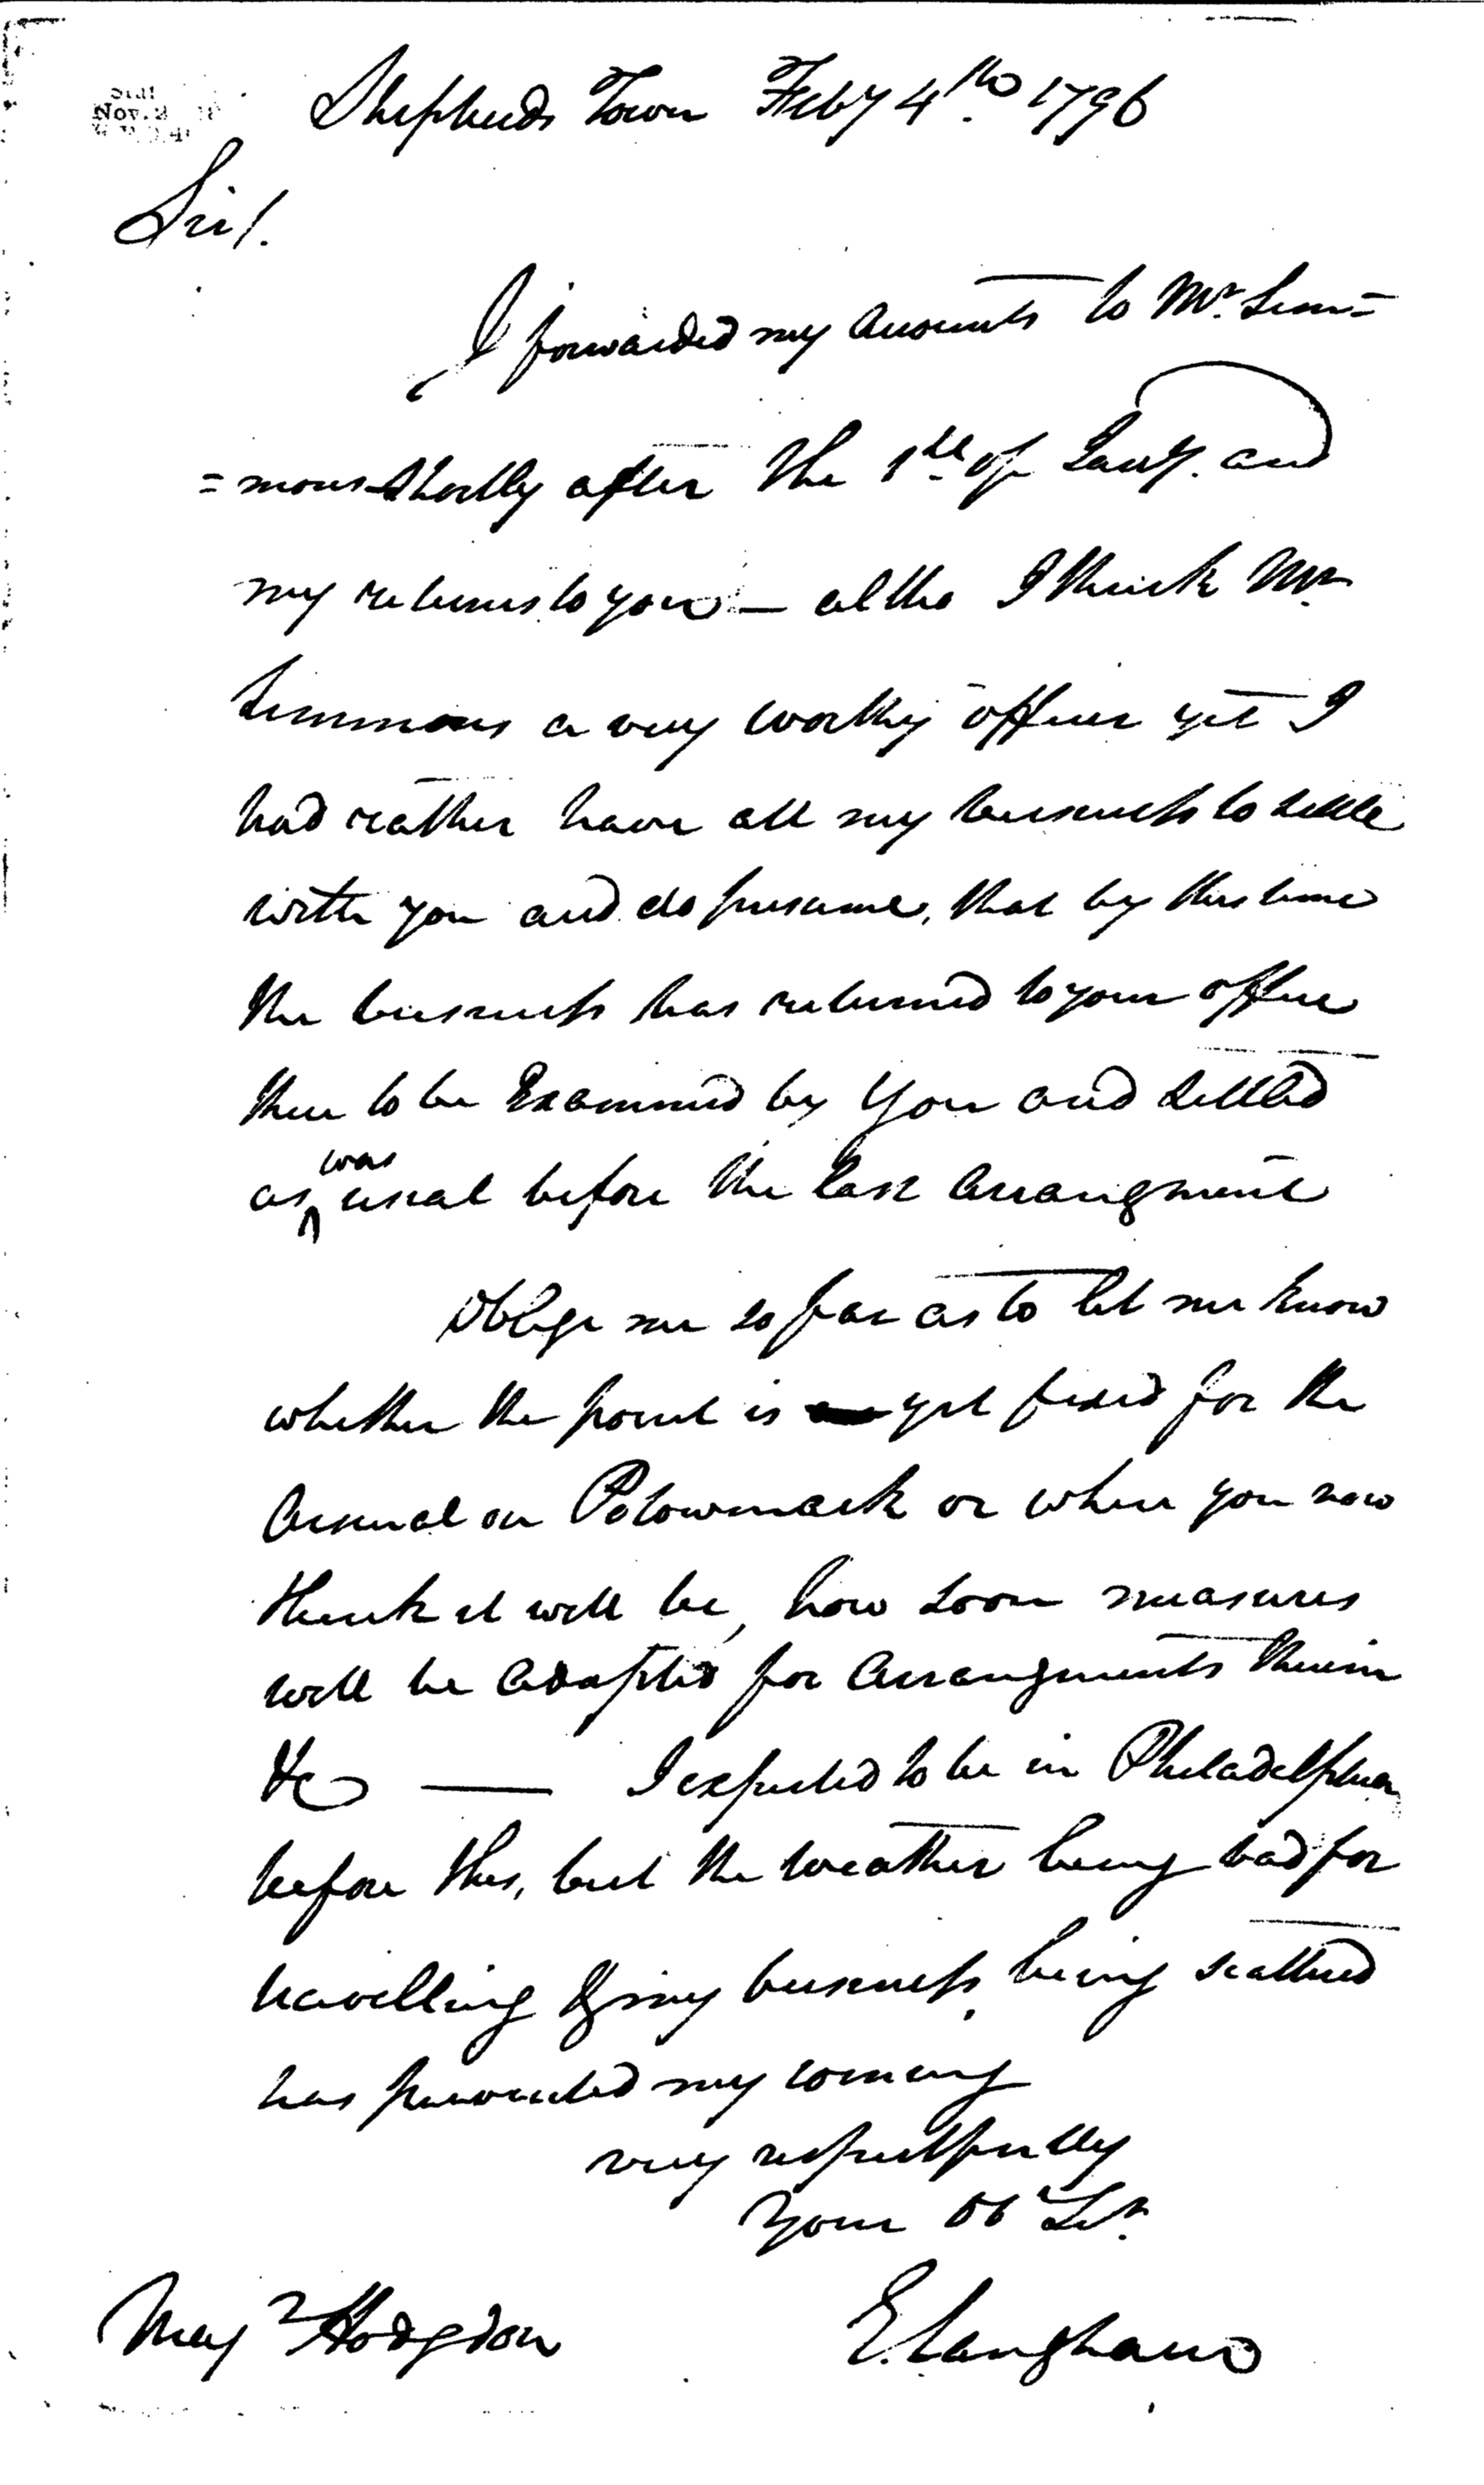 Shepherds Town Feby 4th. 1796
Sir/.
I forwarded my Accounts to Mr. Sim=
=mons shortly after the 1st of Jany. and
my returns to you — altho I think Mr.
Simmons a very worthy officer yet I
had rather have all my business to settle
with you and do presume, that by this time
the business has returned to your office
there to be Examined by You and settled
as was usual before the last Arrangment
Oblige me so far as to let me know
whether the point is yet fixed for the
Arsenal on Potowmack or where you now
think it will be, how soon measures
will be Adopted for Arrangments therein
&c — I expected to be in Philadelphia
before this, but the weather being bad for
travelling & my business being scattered
has prevented my coming
very respectfully
Your Ob Sert.
Majr Hodgdon
E. Langham